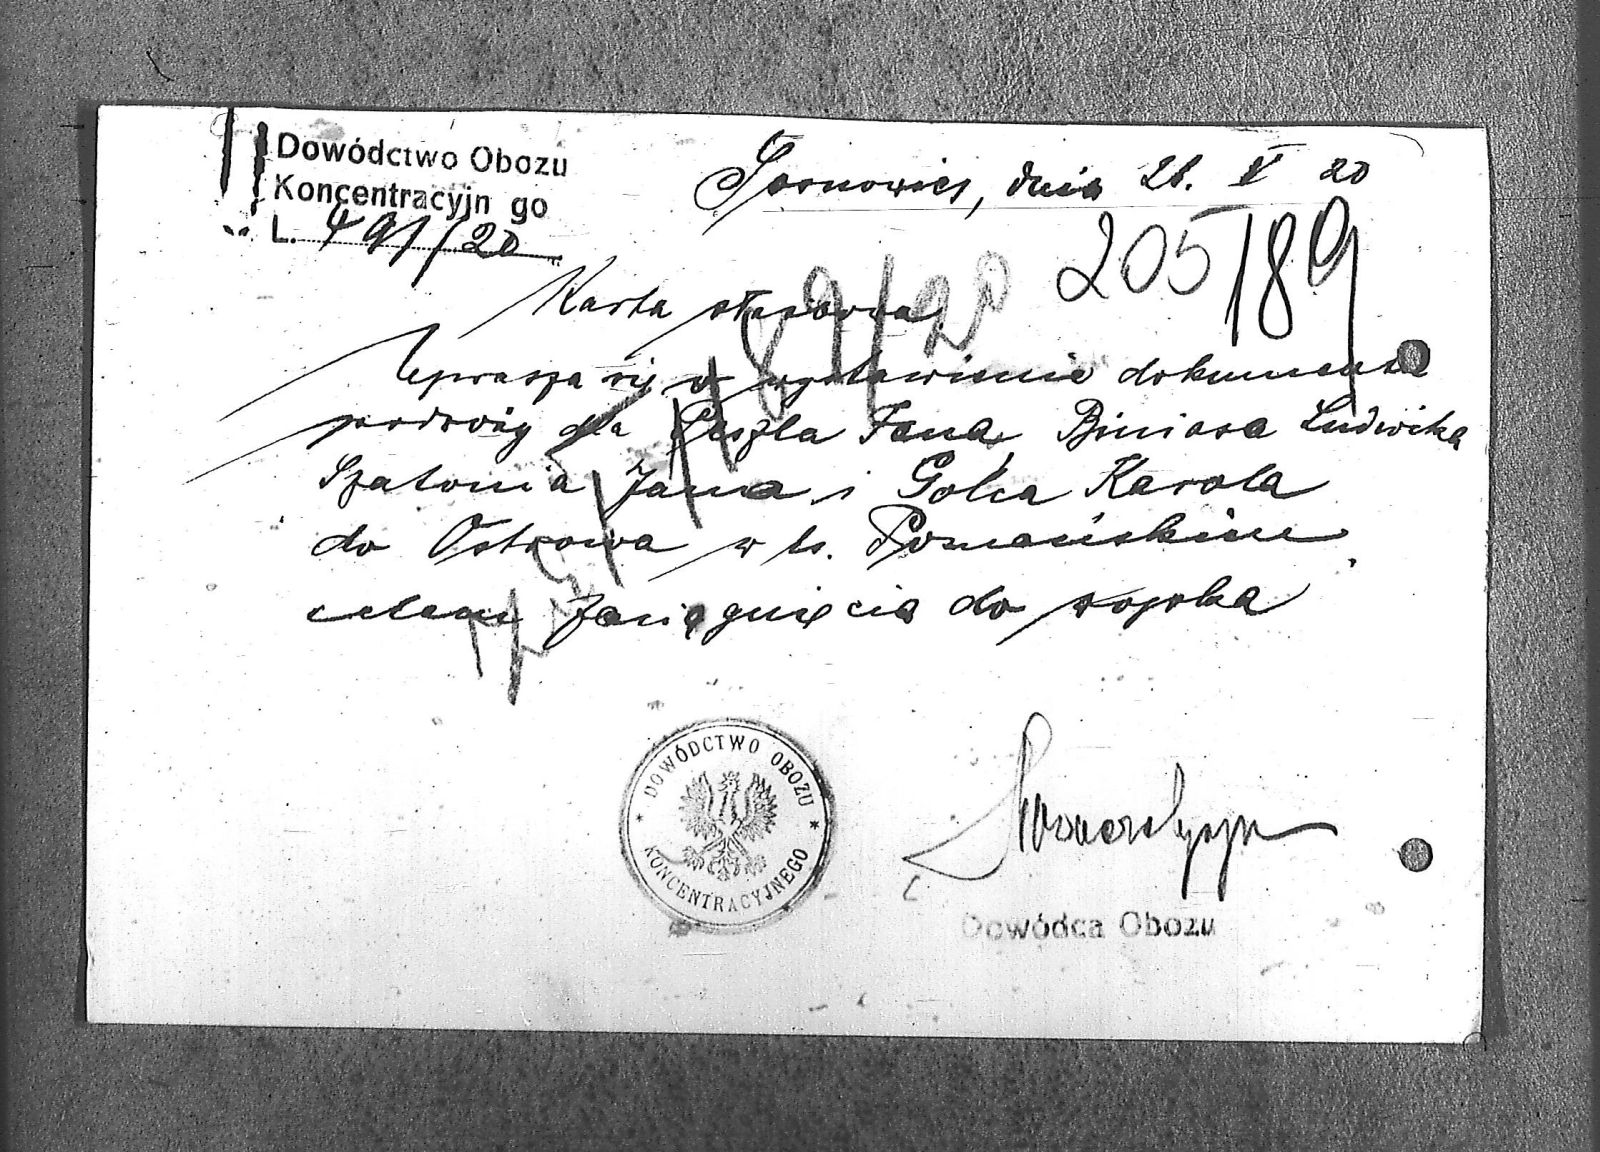 Dowództwo Obozu
Koncentracyjn go
L. 491/20
Sosnowiec, dnia 21. V 20
205/89
Karta służbowa
Uprasza się o wystawienie dokumentu
podróży dla Peszla Jana, Biniasa Ludwika
Szatonia Jana i Golca Karola
do Ostrowa w ks. Poznańskiem
celem zaciągnięcia do wojska
* DOWÓDCTWO OBOZU *
KONCENTRACYJNEGO
Dowódca Obozu